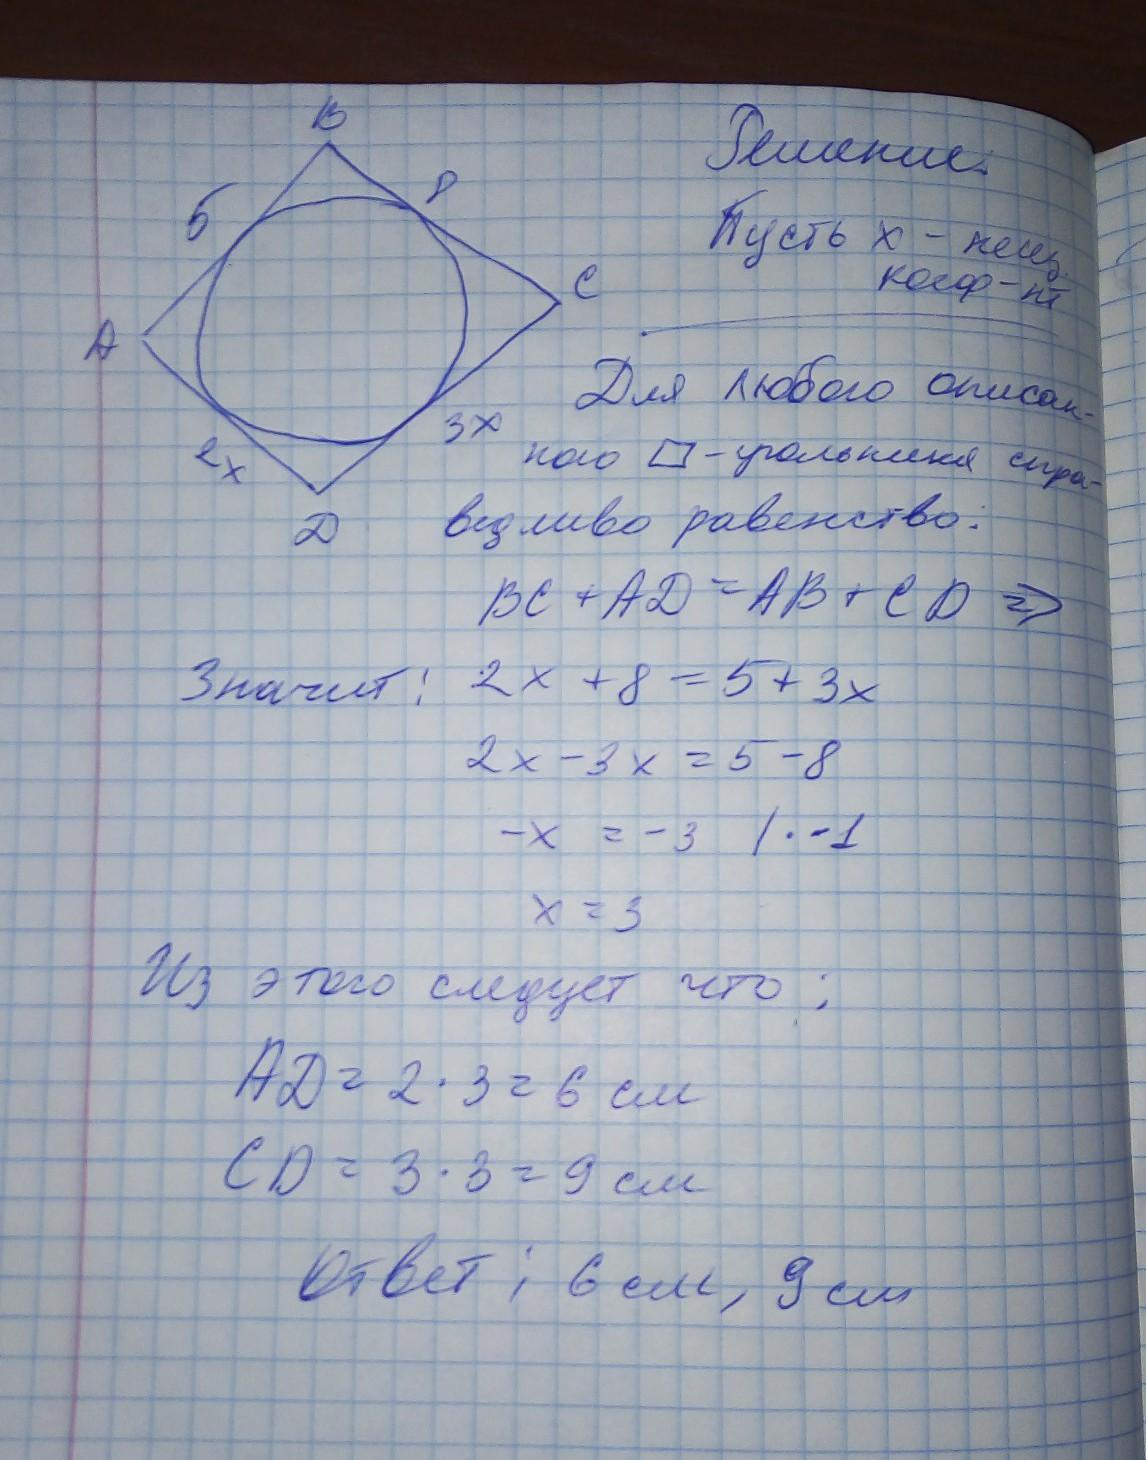 B
5
8
C
A
2x
3x
D
Решение:
Пусть x -
коэф-нт
Для любого описан-
ного □-угольника спра-
ведливо равенство:
BC + AD = AB + CD =>
Значит: 2x + 8 = 5 + 3x
2x - 3x = 5 - 8
-x = -3 | · -1
x = 3
Из этого следует что:
AD = 2 · 3 = 6 см
CD = 3 · 3 = 9 см
Ответ: 6 см, 9 см